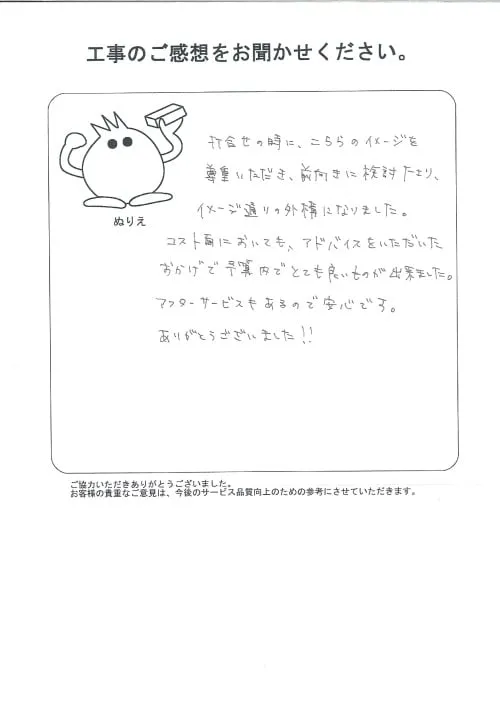 工事のご感想をお聞かせください。
ぬりえ
打合せの時に、こちらのイメージを
尊重いただき、前向きに検討下さり、
イメージ通りの外構になりました。
コスト面においても、アドバイスをいただいた
おかげで予算内でとても良いものが出来ました。
アフターサービスもあるので安心です。
ありがとうございました!!
ご協力いただきありがとうございました。
お客様の貴重なご意見は、今後のサービス品質向上のための参考にさせていただきます。